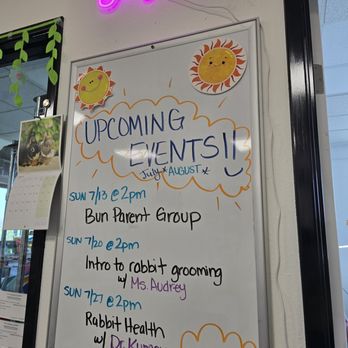 UPCOMING
EVENTS!!
July & AUGUST
SUN 7/13 @ 2pm
Bun Parent Group
SUN 7/20 @ 2pm
Intro to rabbit grooming
w/ Ms. Audrey
SUN 7/27 @ 2pm
Rabbit Health
w/ Dr.